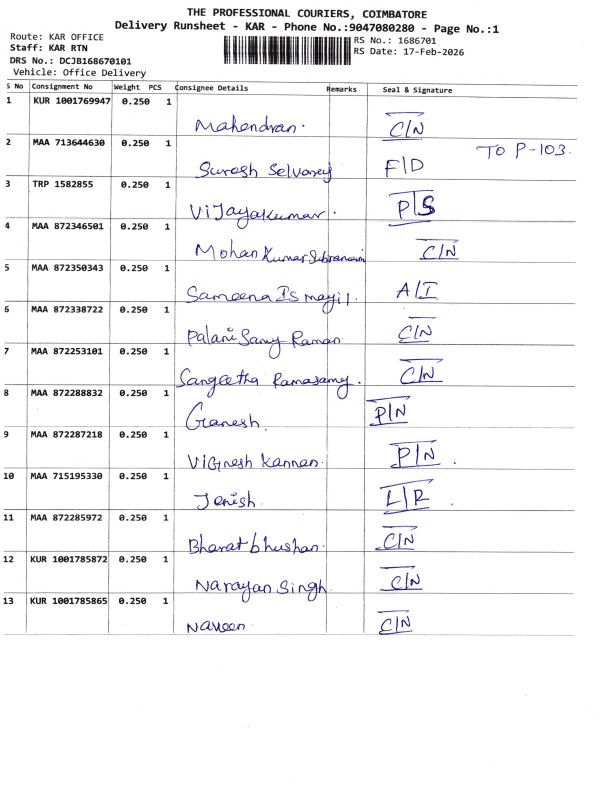 THE PROFESSIONAL COURIERS, COIMBATORE
Delivery Runsheet - KAR - Phone No.:9047080280 - Page No.:1
Route: KAR OFFICE
Staff: KAR RTN
DRS No.: DCJB168670101
Vehicle: Office Delivery
RS No.: 1686701
RS Date: 17-Feb-2026
S No Consignment No Weight PCS Consignee Details Remarks Seal & Signature
1 KUR 1001769947 0.250 1 Mahendran. C/N
2 MAA 713644630 0.250 1 Suresh F/D TO P-103.
3 TRP 1582855 0.250 1 ViJayakumar. P/S
4 MAA 872346501 0.250 1 Mohan Kumar C/N
5 MAA 872350343 0.250 1 Sameena Ismayil. A/I
6 MAA 872338722 0.250 1 Palani Samy Raman C/N
7 MAA 872253101 0.250 1 Sangeetha Ramasamy. C/N
8 MAA 872288832 0.250 1 Ganesh. P/N
9 MAA 872287218 0.250 1 ViGnesh Kannan. P/N.
10 MAA 715195330 0.250 1 Jenish. L/R.
11 MAA 872285972 0.250 1 Bharat bhushan. C/N
12 KUR 1001785872 0.250 1 Narayan Singh C/N
13 KUR 1001785865 0.250 1 Naveen. C/N